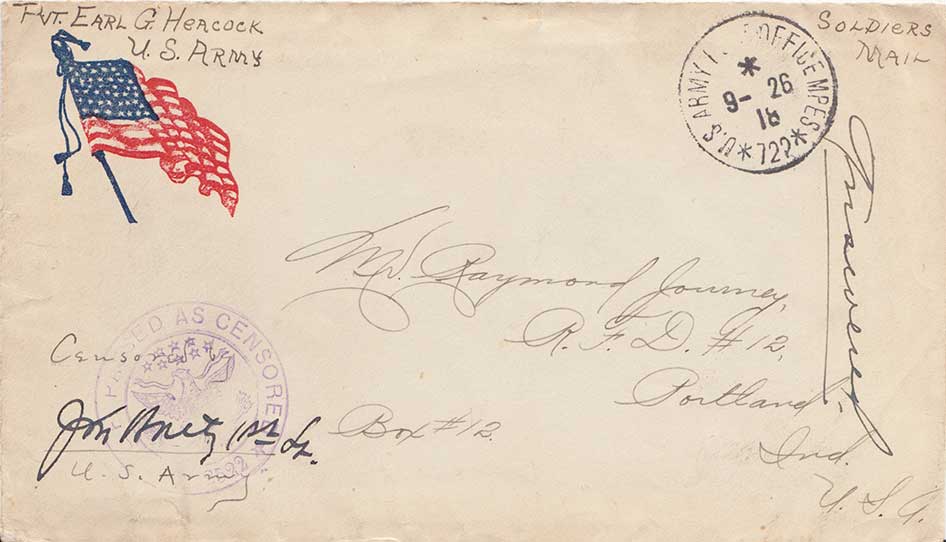 Pvt. Earl G. Heacock
U.S. Army
Soldiers
Mail
U.S. ARMY OFFICE MPES
*
9- 26
18
*722*
Answered
Mr. Raymond Journey,
R.F.D. #12,
Portland
Box #12.
Ind.
U.S.A.
PASSED AS CENSORED
Censored by
1st Lt.
U.S. Army